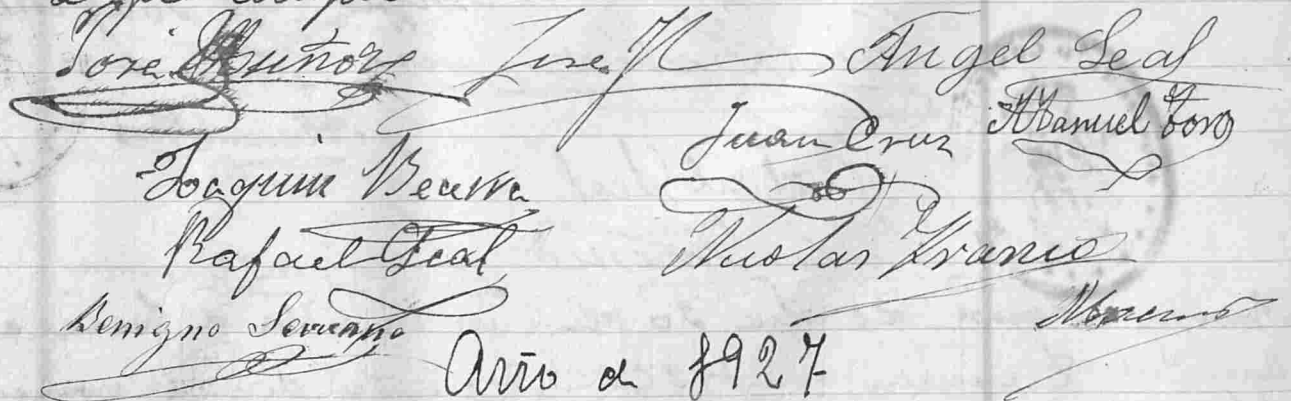 José Muñoz José M Angel Leal
Juan Cruz Manuel Toro
Joaquin Becerra
Rafael Leal Nicolas Franco
Benigno Serrano Moreno
Año de 1927